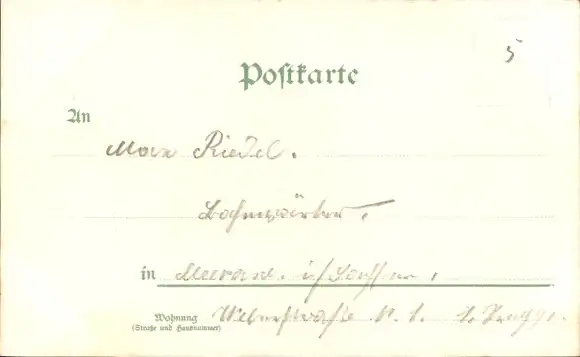 5
Postkarte
An
Max Riedel.
Bahnwärter,
in Meerane. i/Sachsen,
Wohnung Weberstraße N. 1. 1.
(Straße und Hausnummer)